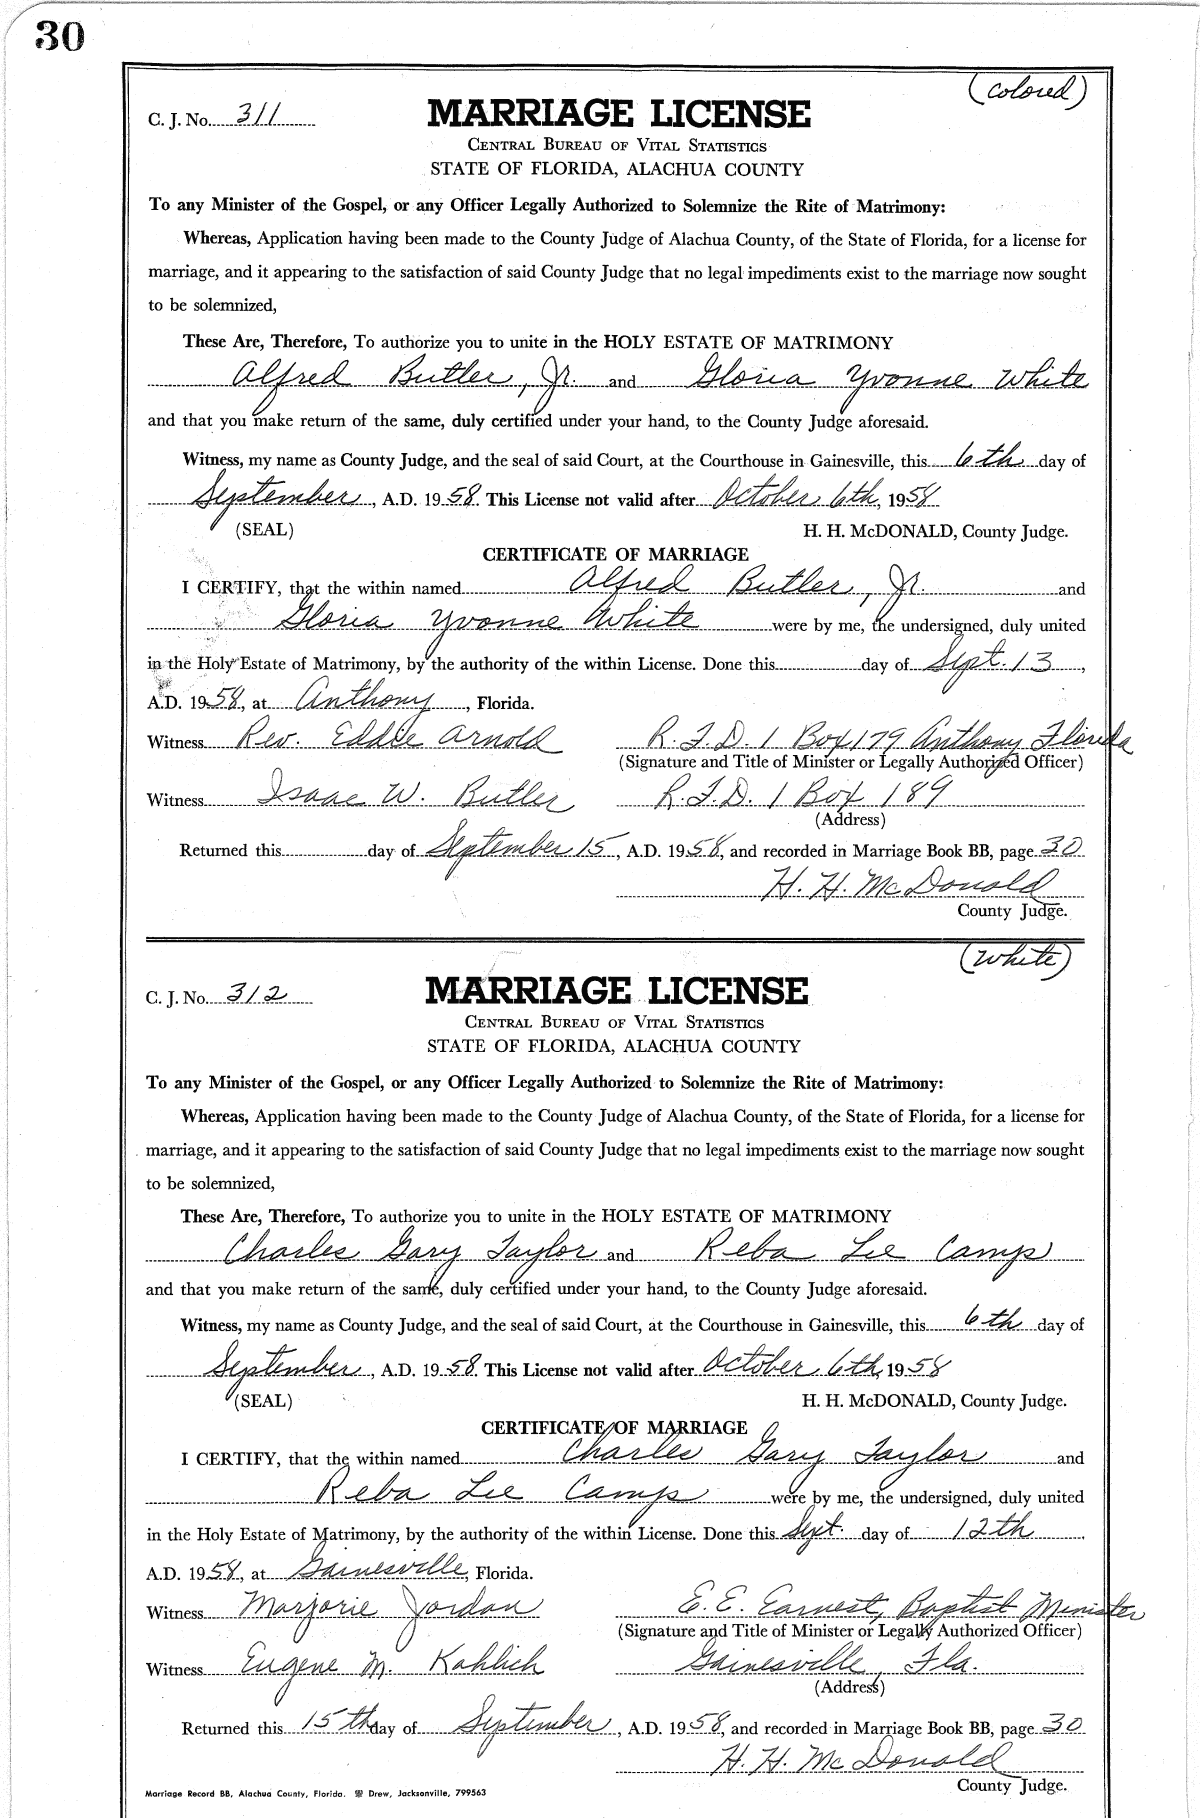 30
(colored)
C. J. No. 311
MARRIAGE LICENSE
CENTRAL BUREAU OF VITAL STATISTICS
STATE OF FLORIDA, ALACHUA COUNTY
To any Minister of the Gospel, or any Officer Legally Authorized to Solemnize the Rite of Matrimony:
Whereas, Application having been made to the County Judge of Alachua County, of the State of Florida, for a license for
marriage, and it appearing to the satisfaction of said County Judge that no legal impediments exist to the marriage now sought
to be solemnized,
These Are, Therefore, To authorize you to unite in the HOLY ESTATE OF MATRIMONY
Alfred Butler, Jr. and Gloria Yvonne White
and that you make return of the same, duly certified under your hand, to the County Judge aforesaid.
Witness, my name as County Judge, and the seal of said Court, at the Courthouse in Gainesville, this 6th day of
September, A.D. 1958. This License not valid after October 6th, 1958
(SEAL) H. H. McDONALD, County Judge.
CERTIFICATE OF MARRIAGE
I CERTIFY, that the within named Alfred Butler, Jr. and
Gloria Yvonne White were by me, the undersigned, duly united
in the Holy Estate of Matrimony, by the authority of the within License. Done this day of Sept. 13,
A.D. 1958, at Anthony, Florida.
Witness Rev. Eddie Arnold R.F.D. 1 Box 179 Anthony Florida
(Signature and Title of Minister or Legally Authorized Officer)
Witness Isaac W. Butler R.F.D. 1 Box 189
(Address)
Returned this day of September 15, A.D. 1958, and recorded in Marriage Book BB, page 30
H. H. McDonald
County Judge.
(White)
C. J. No. 312
MARRIAGE LICENSE
CENTRAL BUREAU OF VITAL STATISTICS
STATE OF FLORIDA, ALACHUA COUNTY
To any Minister of the Gospel, or any Officer Legally Authorized to Solemnize the Rite of Matrimony:
Whereas, Application having been made to the County Judge of Alachua County, of the State of Florida, for a license for
marriage, and it appearing to the satisfaction of said County Judge that no legal impediments exist to the marriage now sought
to be solemnized,
These Are, Therefore, To authorize you to unite in the HOLY ESTATE OF MATRIMONY
Charles Gary Taylor and Reba Lee Camp
and that you make return of the same, duly certified under your hand, to the County Judge aforesaid.
Witness, my name as County Judge, and the seal of said Court, at the Courthouse in Gainesville, this 6th day of
September, A.D. 1958. This License not valid after October 6th, 1958
(SEAL) H. H. McDONALD, County Judge.
CERTIFICATE OF MARRIAGE
I CERTIFY, that the within named Charles Gary Taylor and
Reba Lee Camp were by me, the undersigned, duly united
in the Holy Estate of Matrimony, by the authority of the within License. Done this Sept. day of 12th
A.D. 1958, at Gainesville, Florida.
Witness Marjorie Jordan E. E. Earnest, Baptist Minister
(Signature and Title of Minister or Legally Authorized Officer)
Witness Eugene M. Kahlich Gainesville, Fla.
(Address)
Returned this 15th day of September, A.D. 1958, and recorded in Marriage Book BB, page 30
H. H. McDonald
County Judge.
Marriage Record BB, Alachua County, Florida. Drew, Jacksonville, 799563